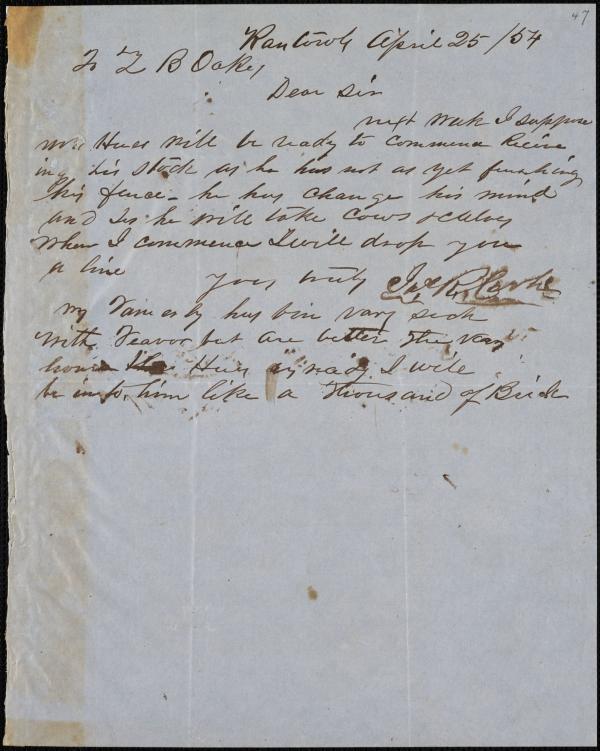 47
Rantowls April 25/54
To Z B Oakes
Dear Sir
next week I suppose
Hues will be ready to commence Receiv
ing his stock as he has not as yet
his fence - he has change his mind
and he will take cows & calves
When I commence I will drop you
a line yors truly
my Family has bin vary sick
with Feavor but are better The vary
hour Hues is ready I will
be in to him like a Thousand of Brick